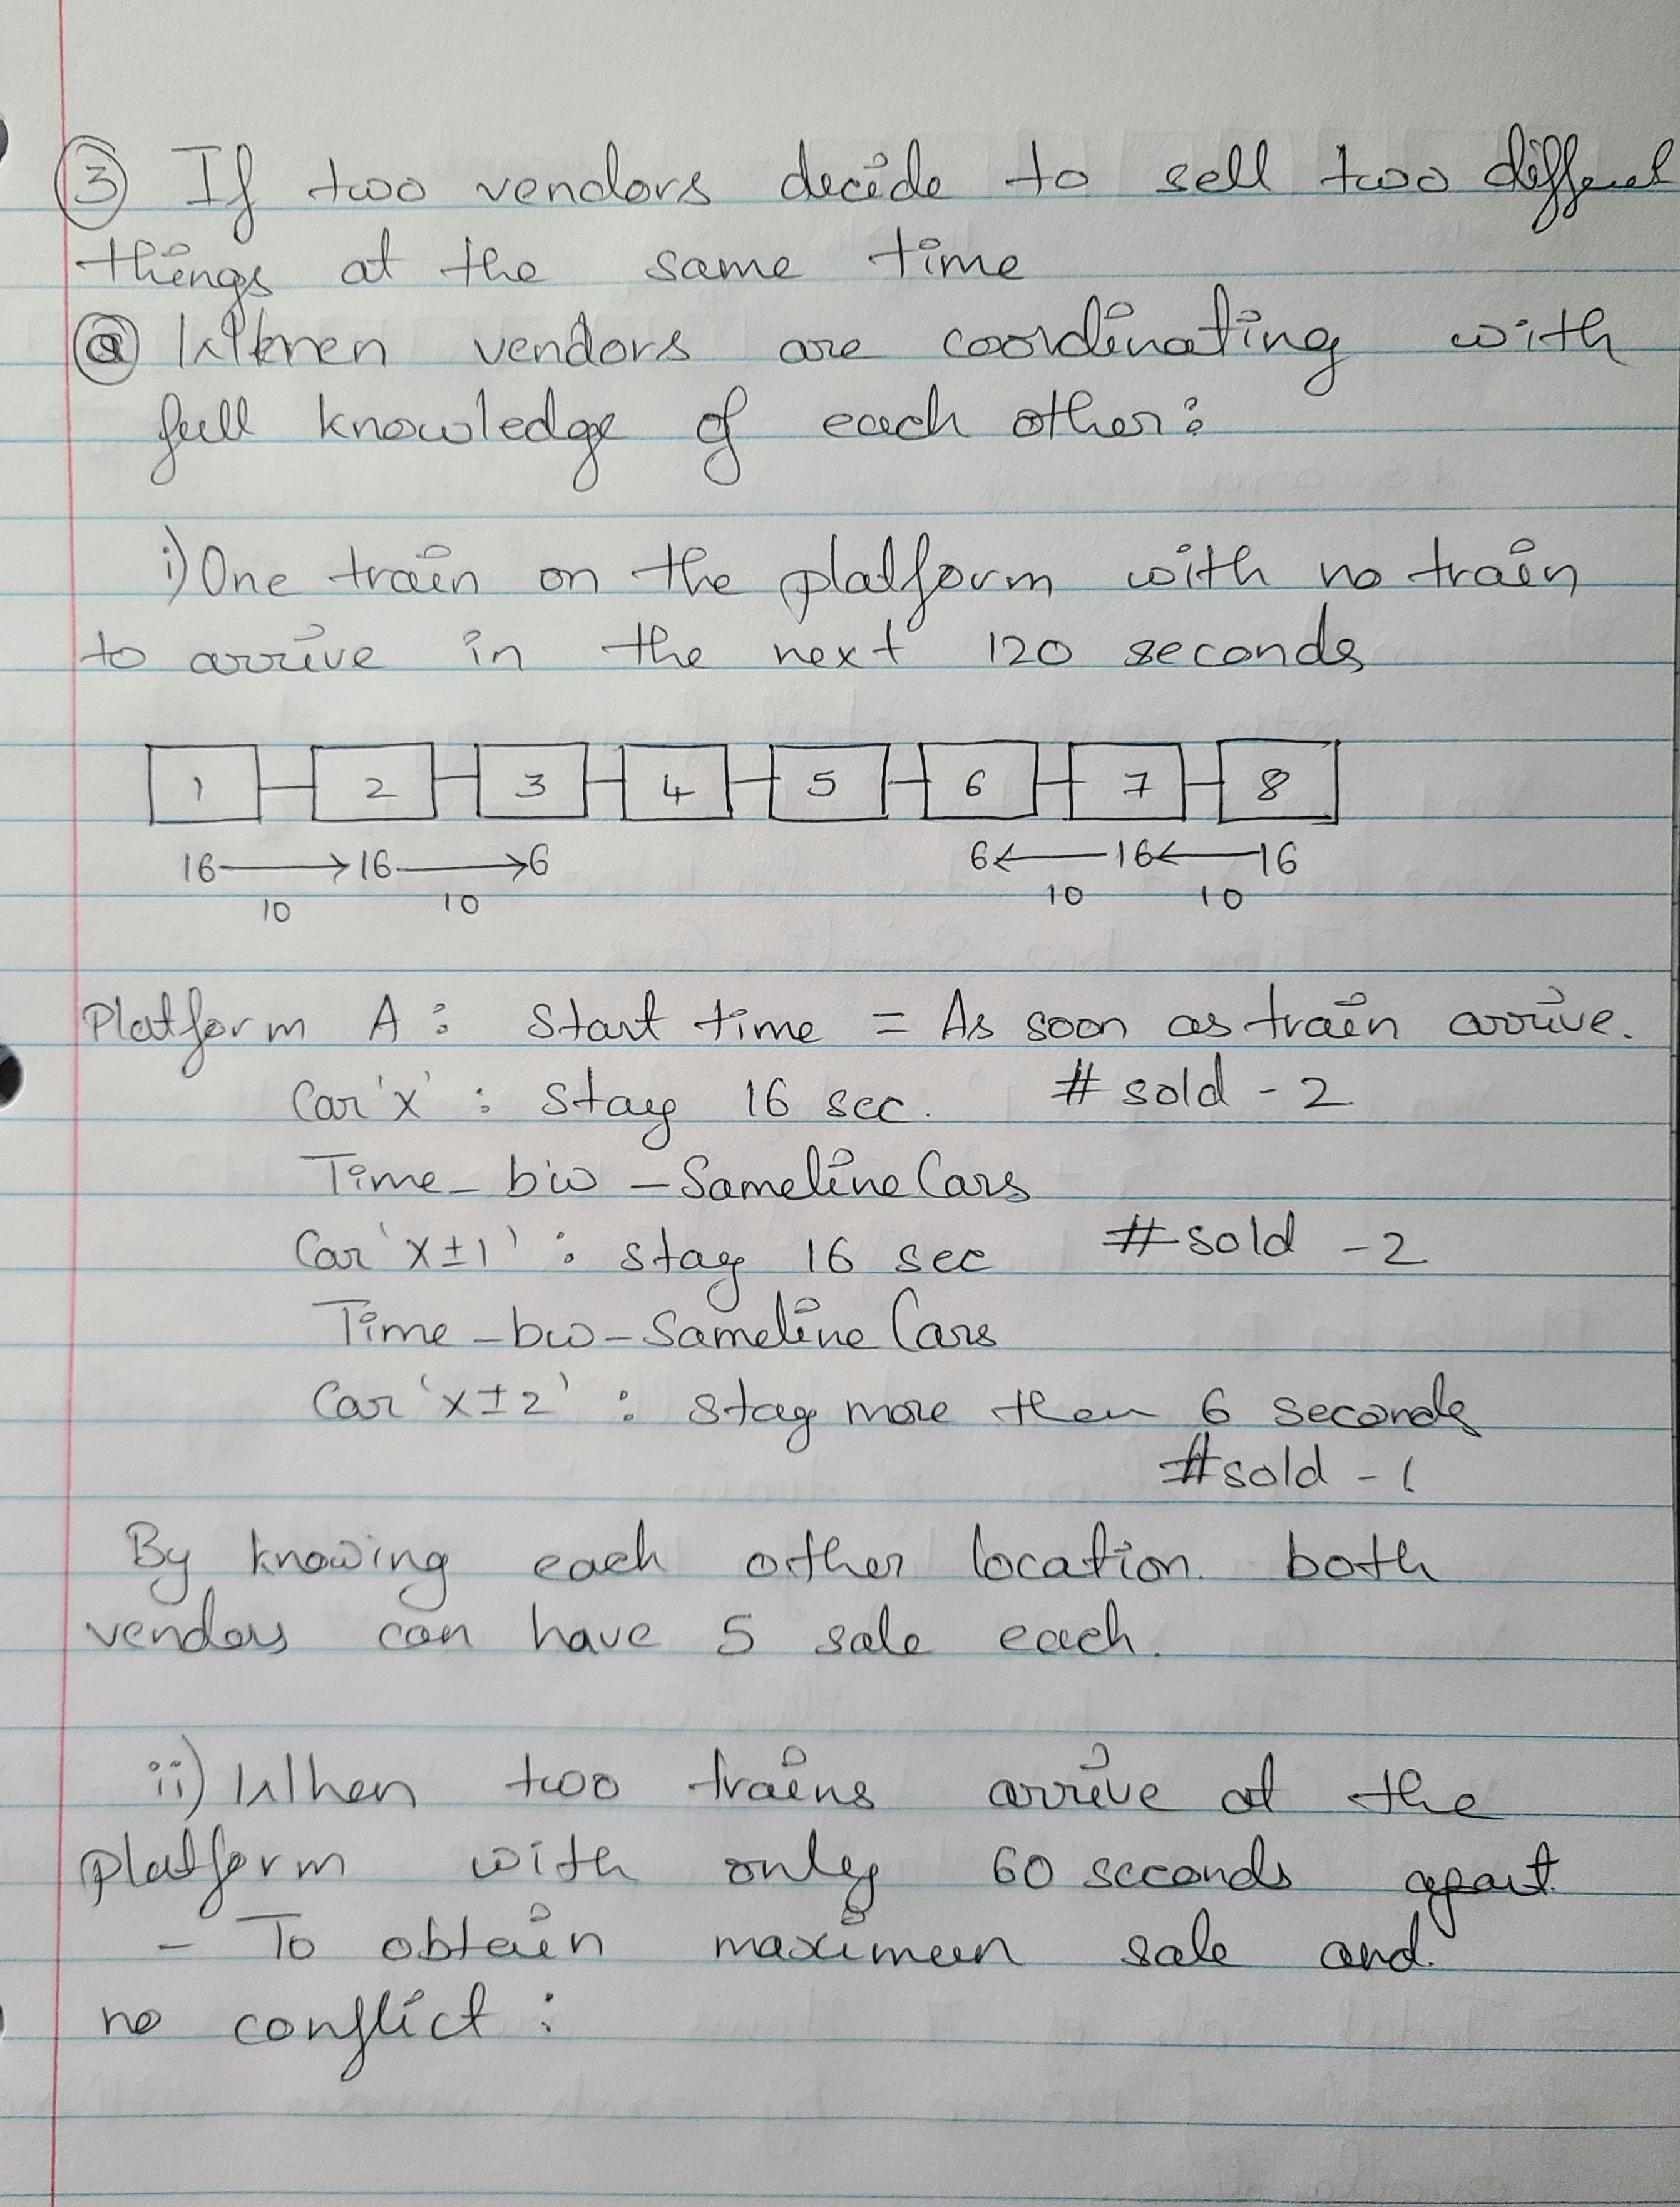 ③ If two vendors decide to sell two different
things at the same time
ⓐ When vendors are coordinating with
full knowledge of each other:
i) One train on the platform with no train
to arrive in the next 120 seconds
1 2 3 4 5 6 7 8
16 → 16 → 6 6 ← 16 ← 16
10 10 10 10
Platform A : Start time = As soon as train arrive.
Car 'x' : stay 16 sec. # sold - 2
Time - bw - Sameline Cars
Car 'x±1' : stay 16 sec # sold - 2
Time - bw - Sameline Cars
Car 'x±2' : stay more then 6 seconds
# sold - 1
By knowing each other location. both
vendors can have 5 sale each.
ii) When two trains arrive at the
platform with only 60 seconds apart.
- To obtain maximum sale and.
no conflict :